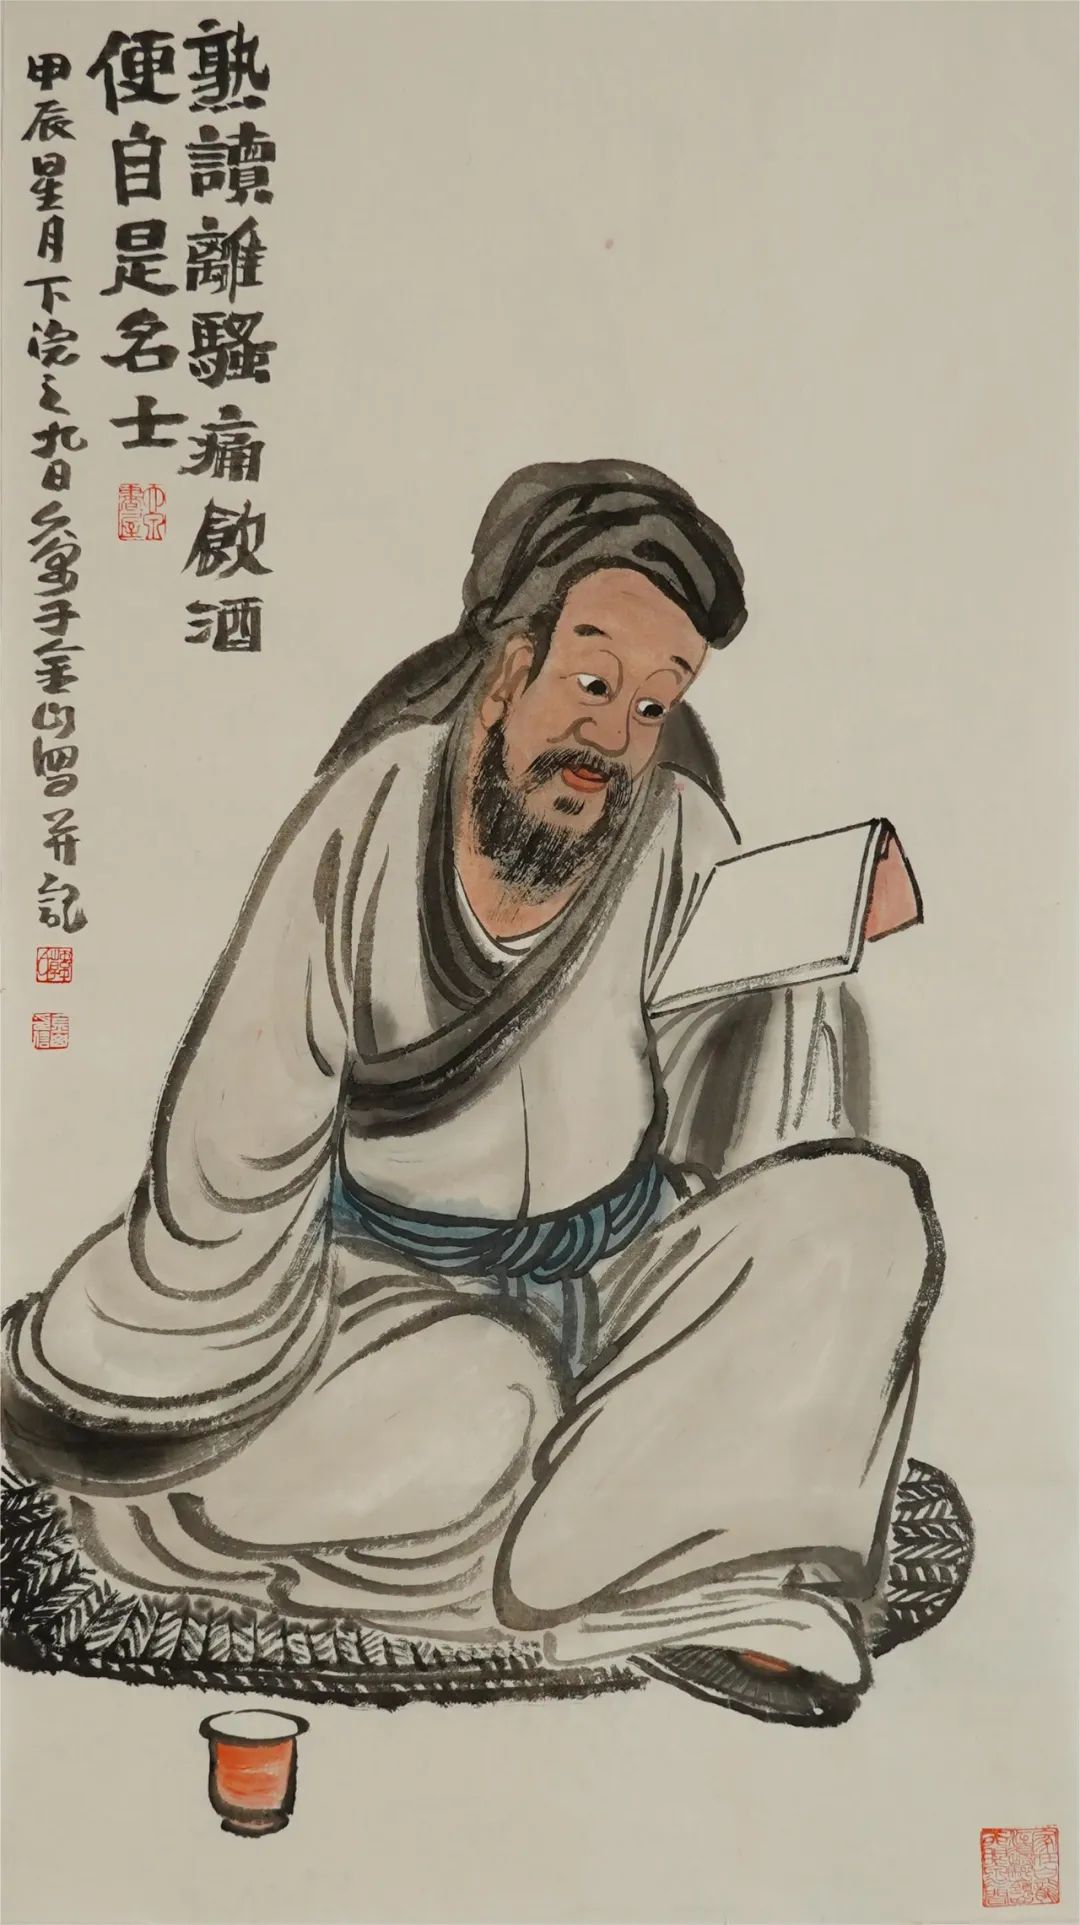 熟讀離騷痛飲酒
便自是名士
甲辰星月下浣之九日
於金山 并記